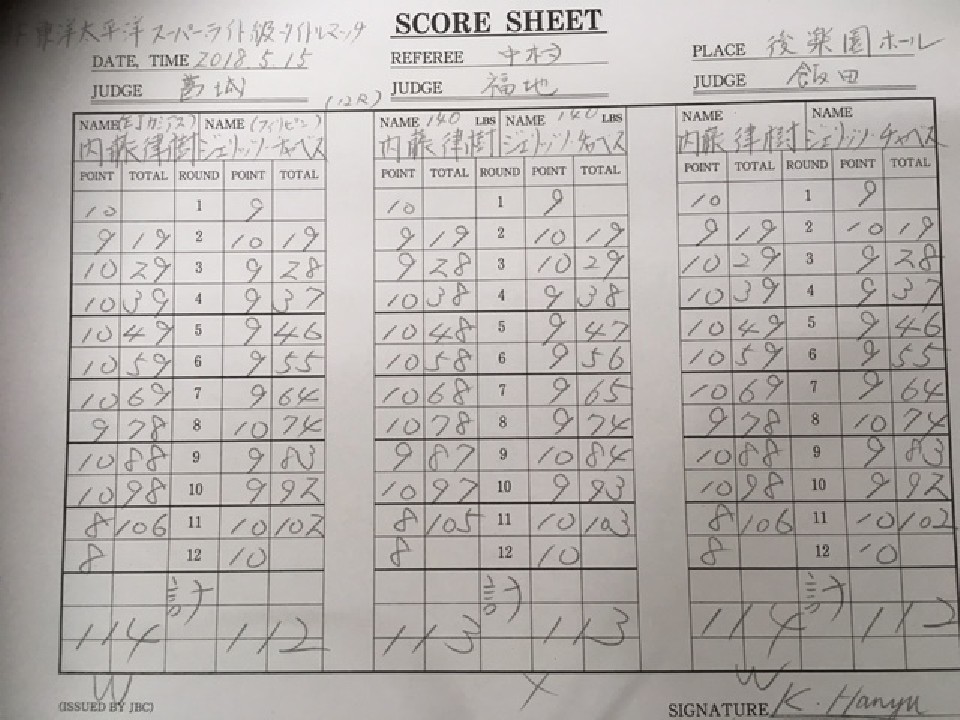 東洋太平洋 スーパーライト級 タイトルマッチ
SCORE SHEET
DATE, TIME 2018.5.15 REFEREE 中村 PLACE 後楽園ホール
JUDGE 葛城 (12R) JUDGE 福地 JUDGE 飯田
NAME (E.Jカシアス) NAME (フィリピン) NAME 140 LBS NAME 140 LBS NAME NAME
内藤律樹 ジェリッツ・チャベス 内藤律樹 ジェリッツ・チャベス 内藤律樹 ジェリッツ・チャベス
POINT TOTAL ROUND POINT TOTAL POINT TOTAL ROUND POINT TOTAL POINT TOTAL ROUND POINT TOTAL
10 1 9 10 1 9 10 1 9
9 19 2 10 19 9 19 2 10 19 9 19 2 10 19
10 29 3 9 28 9 28 3 10 29 10 29 3 9 28
10 39 4 9 37 10 38 4 9 38 10 39 4 9 37
10 49 5 9 46 10 48 5 9 47 10 49 5 9 46
10 59 6 9 55 10 58 6 9 56 10 59 6 9 55
10 69 7 9 64 10 68 7 9 65 10 69 7 9 64
9 78 8 10 74 10 78 8 9 74 9 78 8 10 74
10 88 9 9 83 9 87 9 10 84 10 88 9 9 83
10 98 10 9 92 10 97 10 9 93 10 98 10 9 92
8 106 11 10 102 8 105 11 10 103 8 106 11 10 102
8 12 10 8 12 10 8 12 10
計 計 計
114 112 113 113 114 112
W X W
(ISSUED BY JBC) SIGNATURE K. Hanyu